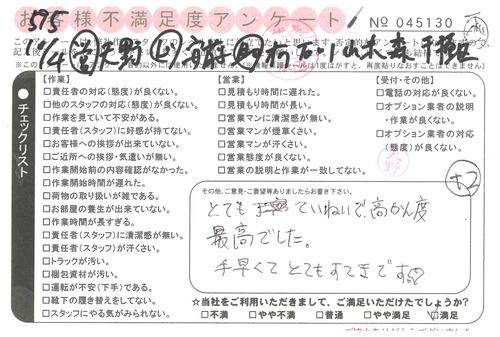 お客様不満足度アンケート
No 045130
575
チェックリスト
【作業】
□責任者の対応(態度)が良くない。
□他のスタッフの対応(態度)が良くない。
□作業を見ていて不安がある。
□責任者(スタッフ)に好感が持てない。
□お客様への挨拶が出来ていない。
□ご近所への挨拶・気遣いが無い。
□作業開始前の内容確認がなかった。
□作業開始時間が遅れた。
□荷物の取り扱いが雑である。
□お部屋の養生が出来ていない。
□作業時間が長すぎる。
□責任者(スタッフ)に清潔感が無い。
□責任者(スタッフ)が汗くさい。
□トラックが汚い。
□梱包資材が汚い。
□運転が不安(下手)である。
□靴下の履き替えをしてない。
□スタッフにやる気がみられない。
【営業】
□見積もり時間に遅れた。
□見積もり時間が長い。
□営業マンに清潔感が無い。
□営業マンが煙草くさい。
□営業マンが汗くさい。
□営業態度が良くない。
□営業の説明と作業が一致してない。
【受付・その他】
□電話の対応が良くない。
□オプション業者の説明・作業が良くない。
□オプション業者の対応(態度)が良くない。
その他、ご意見・ご要望等ありましたらお書き下さい。
とても ていねいで、高かん度
最高でした。
手早くて とてもすてきです
☆当社をご利用いただきまして、ご満足いただけたでしょうか?
□不満 □やや不満 □普通 □やや満足 □満足